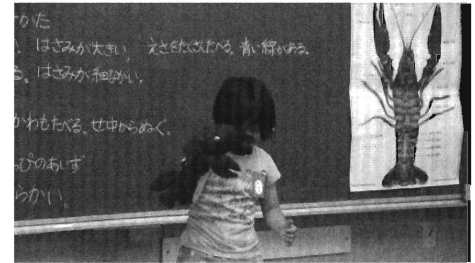 かた
はさみが大きい えさをたくさんたべる。青い線がある。
る。はさみが細ながい。
かわもたべる。せ中からぬぐ。
っぴのあいず
らかい。